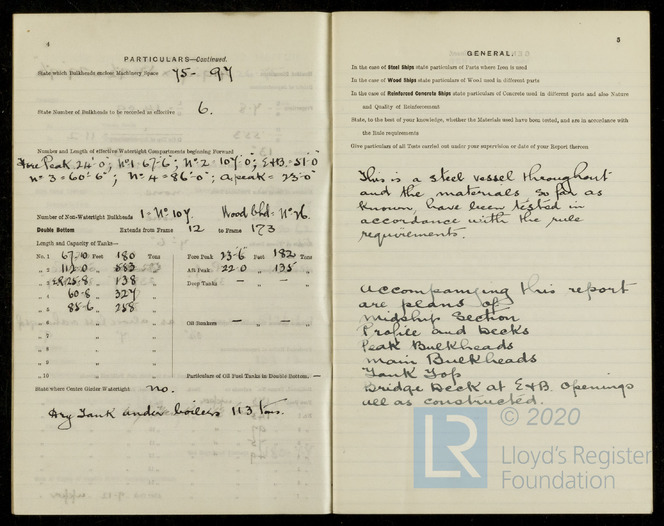 4
PARTICULARS—Continued.
State which Bulkheads enclose Machinery Space 75 - 97
State Number of Bulkheads to be recorded as effective 6.
Number and Length of effective Watertight Compartments beginning Forward
Fore Peak 24'-0"; No 1 = 67'-6"; No 2 = 107'-0"; E&B = 51'-0"
No 3 = 60'-6"; No 4 = 86'-0"; A peak = 23'-0"
Number of Non-Watertight Bulkheads 1 = No 107. Wood Bhd = No 76.
Double Bottom Extends from Frame 12 to Frame 173
Length and Capacity of Tanks—
No. 1 67-10 Feet 180 Tons Fore Peak 23-6" Feet 182 Tons
„ 2 112-0 „ 583 „ Aft Peak 22-0 „ 135 „
„ 3 25-8 „ 138 „ Deep Tanks — „ — „
„ 4 60-8 „ 327 „
„ 5 85-6 „ 258 „
„ 6 „ „ Oil Bunkers — „ — „
„ 7 „ „
„ 8 „ „
„ 9 „ „
„ 10 „ „ Particulars of Oil Fuel Tanks in Double Bottom. —
State where Centre Girder Watertight. no.
Dry Tank under boilers 113 tons.
5
GENERAL.
In the case of Steel Ships state particulars of Parts where Iron is used
In the case of Wood Ships state particulars of Wood used in different parts
In the case of Reinforced Concrete Ships state particulars of Concrete used in different parts and also Nature
and Quality of Reinforcement
State, to the best of your knowledge, whether the Materials used have been tested, and are in accordance with
the Rule requirements
Give particulars of all Tests carried out under your supervision or date of your Report thereon
This is a steel vessel throughout
and the materials so far as
known, have been tested in
accordance with the rule
requirements.
Accompanying this report
are plans of
Midship Section
Profile and Decks
Peak Bulkheads
Main Bulkheads
Tank Top
Bridge Deck at E&B. Openings
all as constructed.
© 2020
LR
Lloyd's Register
Foundation